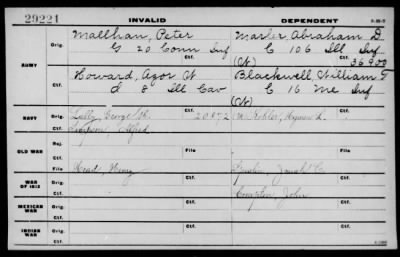 29221 INVALID DEPENDENT
Mallhan, Peter Marler, Abraham D
ARMY Orig. G 20 Conn Inf C 106 Ill Inf
Ctf. (Ct) 36900
Howard, Azor W Blackwell, William T
Orig. d 8 Ill Cav C 16 Me Inf
Ctf. (Ct)
NAVY Orig. Lully, George M. 20872 Kohler, Hyman L.
Ctf. Simpson, Alfred
OLD WAR Rej.
Ctf. File File
WAR OF 1812 Orig. Head, Henry Josiah C.
Ctf. Compton, John
MEXICAN WAR Orig.
Ctf.
INDIAN WAR Orig.
Ctf.